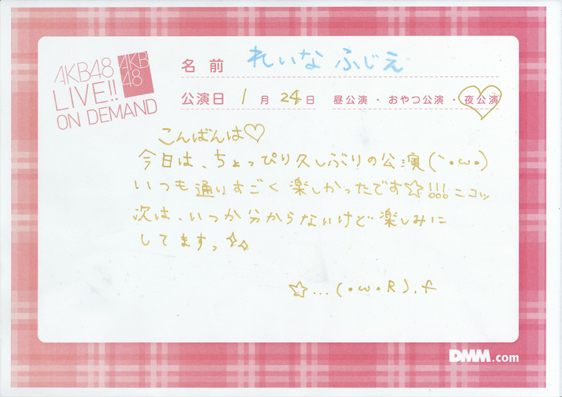 AKB48
LIVE!!
ON DEMAND
AKB
48
名前 れいな ふじえ
公演日 1月24日 昼公演・おやつ公演・夜公演
こんばんは♡
今日は、ちょっぴり久しぶりの公演(`・ω・)
いつも通りすごく楽しかったです☆!!!ニコッ
次は、いつか分からないけど楽しみに
してますっ☆☆
☆...(・ω・R).f
DMM.com